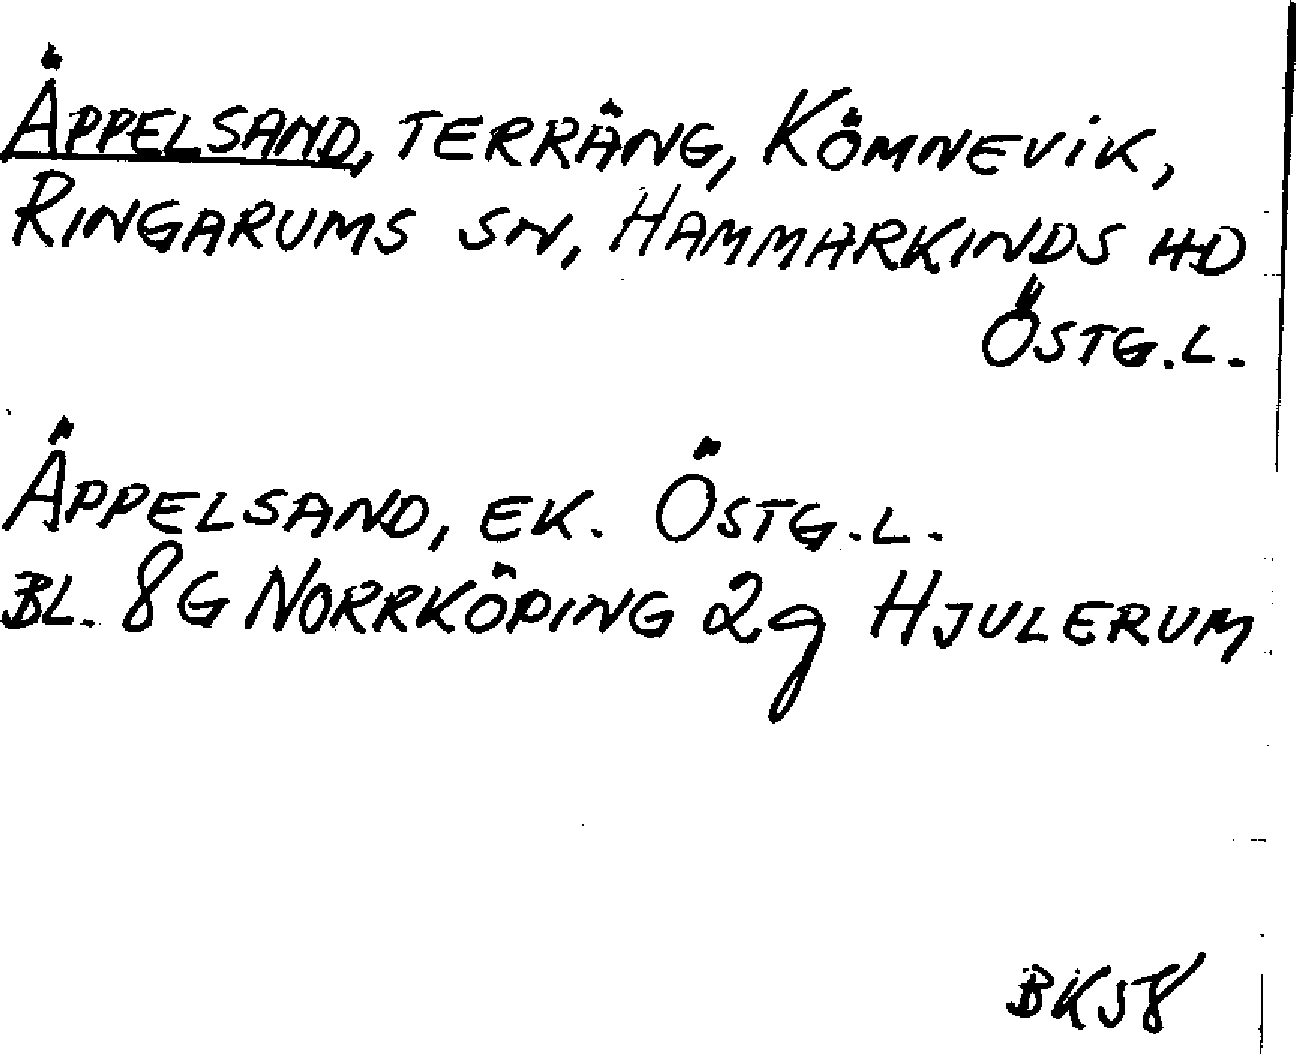 ÄPPELSAND, TERRÄNG, KÖMNEVIK,
RINGARUMS SN, HAMMARKINDS HD
ÖSTG.L.
ÄPPELSAND, EK. ÖSTG.L.
BL. 8G NORRKÖPING 2g HJULERUM
BK58